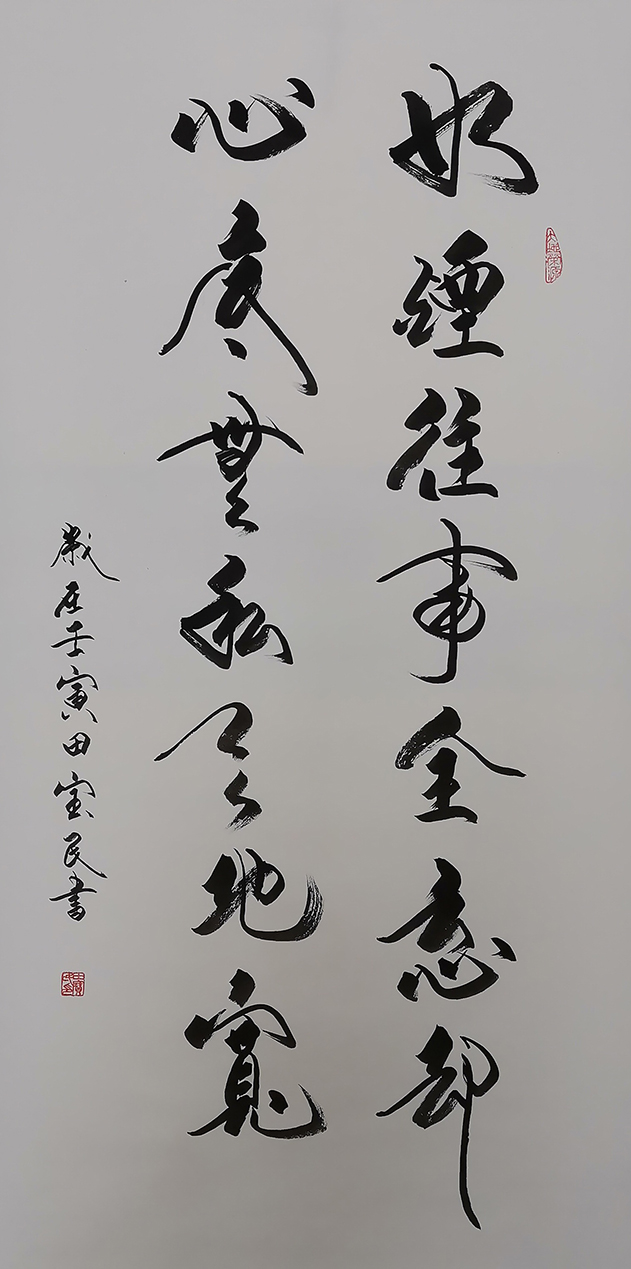 如煙往事全忘却
心底無私天地寬
歲在壬寅田宝民書